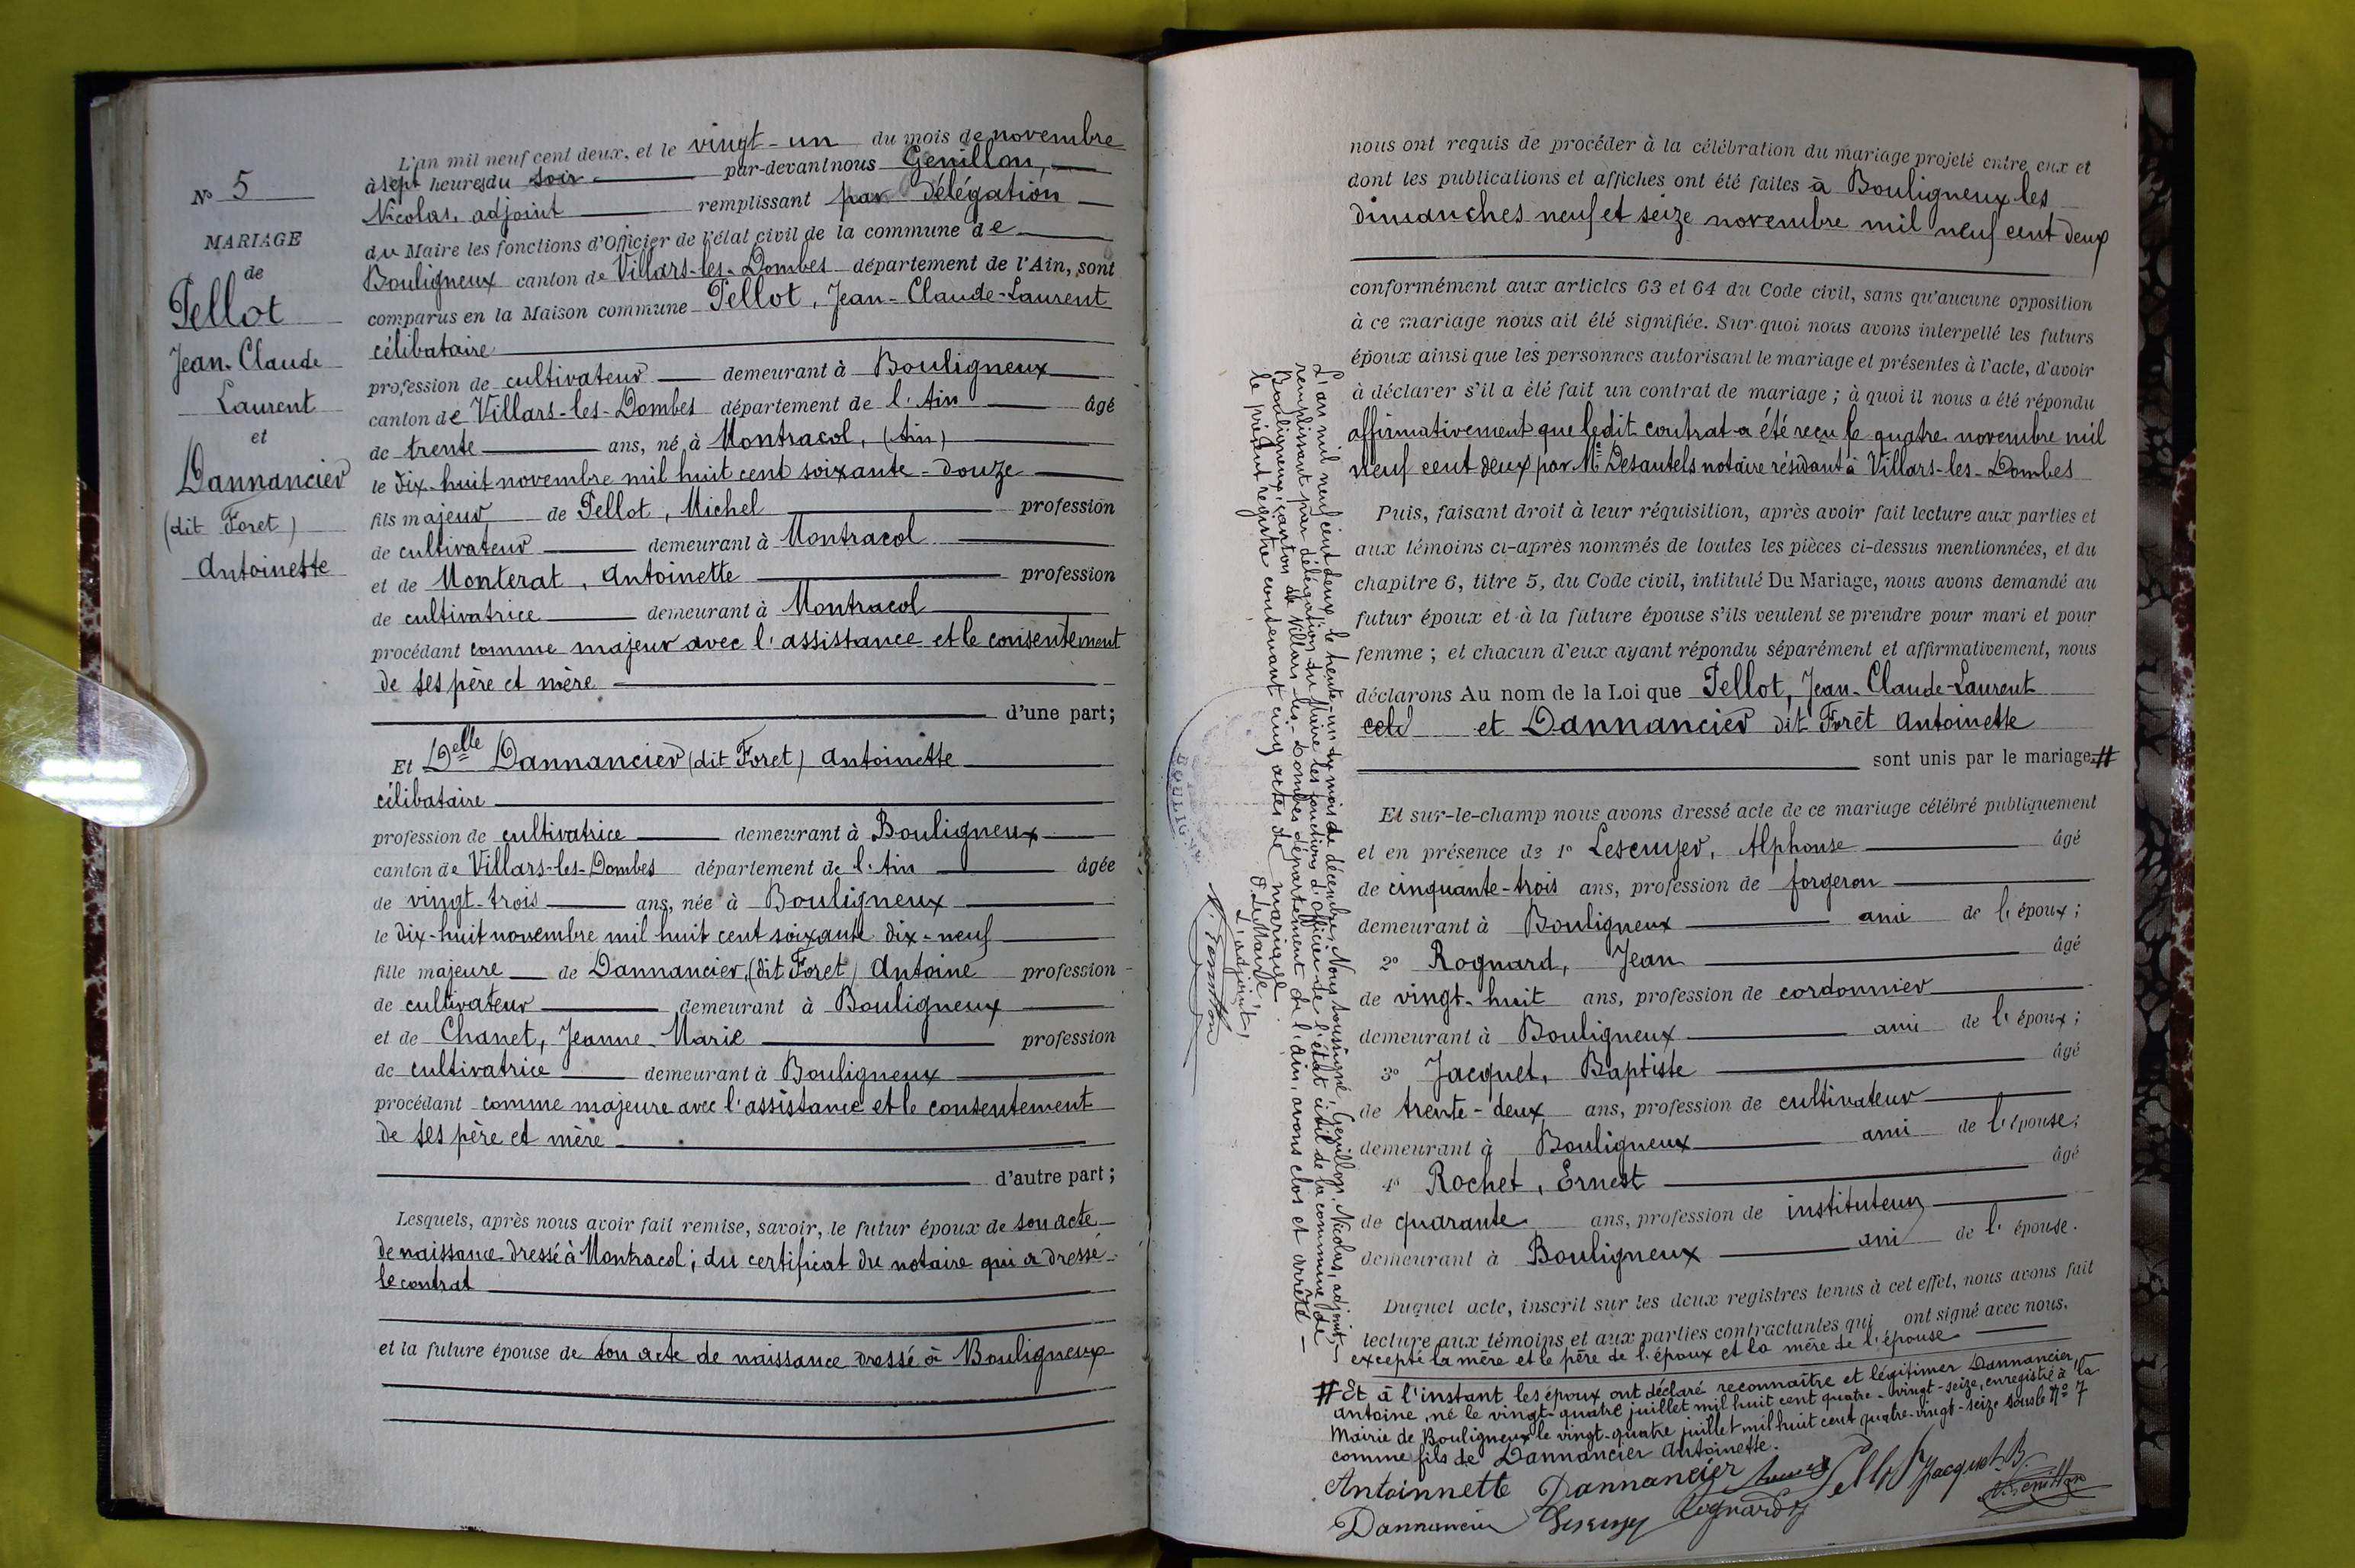 N° 5
MARIAGE
de
Pellot
Jean-Claude
Laurent
et
Dannancier
(dit Foret)
Antoinette
L'an mil neuf cent deux, et le vingt-un du mois de novembre
à sept heures du soir par-devant nous Genillon,
Nicolas, adjoint remplissant par délégation
du Maire les fonctions d'Officier de l'état civil de la commune de
Bouligneux canton de Villars-les-Dombes département de l'Ain, sont
comparus en la Maison commune Pellot, Jean-Claude-Laurent
célibataire
profession de cultivateur demeurant à Bouligneux
canton de Villars-les-Dombes département de l'Ain âgé
de trente ans, né à Montracol, (Ain)
le dix-huit novembre mil huit cent soixante-douze
fils majeur de Pellot, Michel profession
de cultivateur demeurant à Montracol
et de Monterat, Antoinette profession
de cultivatrice demeurant à Montracol
procédant comme majeur avec l'assistance et le consentement
de ses père et mère
d'une part;
Et Delle Dannancier (dit Foret) Antoinette
célibataire
profession de cultivatrice demeurant à Bouligneux
canton de Villars-les-Dombes département de l'Ain âgée
de vingt-trois ans, née à Bouligneux
le dix-huit novembre mil huit cent soixante dix-neuf
fille majeure de Dannancier, (dit Foret) Antoine profession
de cultivateur demeurant à Bouligneux
et de Chanet, Jeanne-Marie profession
de cultivatrice demeurant à Bouligneux
procédant comme majeure avec l'assistance et le consentement
de ses père et mère
d'autre part;
Lesquels, après nous avoir fait remise, savoir, le futur époux de son acte
de naissance dressé à Montracol; du certificat du notaire qui a dressé
le contrat
et la future épouse de son acte de naissance dressé à Bouligneux
nous ont requis de procéder à la célébration du mariage projeté entre eux et
dont les publications et affiches ont été faites à Bouligneux les
dimanches neuf et seize novembre mil neuf cent deux
conformément aux articles 63 et 64 du Code civil, sans qu'aucune opposition
à ce mariage nous ait été signifiée. Sur quoi nous avons interpellé les futurs
époux ainsi que les personnes autorisant le mariage et présentes à l'acte, d'avoir
à déclarer s'il a été fait un contrat de mariage; à quoi il nous a été répondu
affirmativement que ledit contrat a été reçu le quatre novembre mil
neuf cent deux par Me Desautels notaire résidant à Villars-les-Dombes
Puis, faisant droit à leur réquisition, après avoir fait lecture aux parties et
aux témoins ci-après nommés de toutes les pièces ci-dessus mentionnées, et du
chapitre 6, titre 5, du Code civil, intitulé Du Mariage, nous avons demandé au
futur époux et à la future épouse s'ils veulent se prendre pour mari et pour
femme; et chacun d'eux ayant répondu séparément et affirmativement, nous
déclarons Au nom de la Loi que Pellot, Jean-Claude-Laurent
et Dannancier dit Forêt Antoinette
sont unis par le mariage. #
Et sur-le-champ nous avons dressé acte de ce mariage célébré publiquement
et en présence de 1° Lescuyer, Alphonse âgé
de cinquante-trois ans, profession de forgeron
demeurant à Bouligneux ami de l'époux;
2° Rognard, Jean âgé
de vingt-huit ans, profession de cordonnier
demeurant à Bouligneux ami de l'époux;
3° Jacquet, Baptiste âgé
de trente-deux ans, profession de cultivateur
demeurant à Bouligneux ami de l'épouse;
4° Rochet, Ernest âgé
de quarante ans, profession de instituteur
demeurant à Bouligneux ami de l'épouse.
Duquel acte, inscrit sur les deux registres tenus à cet effet, nous avons fait
lecture aux témoins et aux parties contractantes qui ont signé avec nous,
excepté la mère et le père de l'époux et la mère de l'épouse
# Et à l'instant les époux ont déclaré reconnaître et légitimer Dannancier,
Antoine, né le vingt-quatre juillet mil huit cent quatre-vingt-seize, enregistré à la
Mairie de Bouligneux le vingt-quatre juillet mil huit cent quatre-vingt-seize sous le N° 7
comme fils de Dannancier Antoinette.
Antoinnette Dannancier Pellot Jacquet B. N. Genillon
Dannancier Lescuyer Rognard J
L'an mil neuf cent deux, le trente-un du mois de décembre, Nous soussigné, Genillon, Nicolas, adjoint,
remplissant par délégation du Maire les fonctions d'officier de l'état civil de la commune de
Bouligneux, canton de Villars-les-Dombes, département de l'Ain, avons clos et arrêté
le présent registre contenant cinq actes de mariage
P. le Maire,
L'adjoint,
N. Genillon
BOULIGN